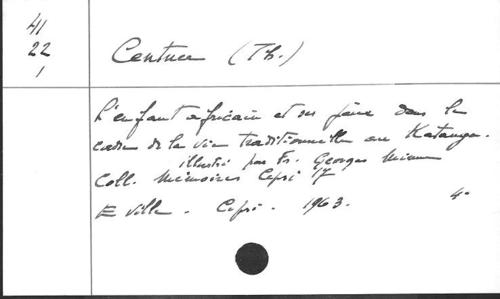 41
22
1
Centner (Th.)
L'enfant africain et ses jeux dans le
cadre de la vie traditionnelle au Katanga.
illustré par Fr. Georges
Coll. Mémoires Cepsi 17
E ville. Cepsi. 1963. 4°